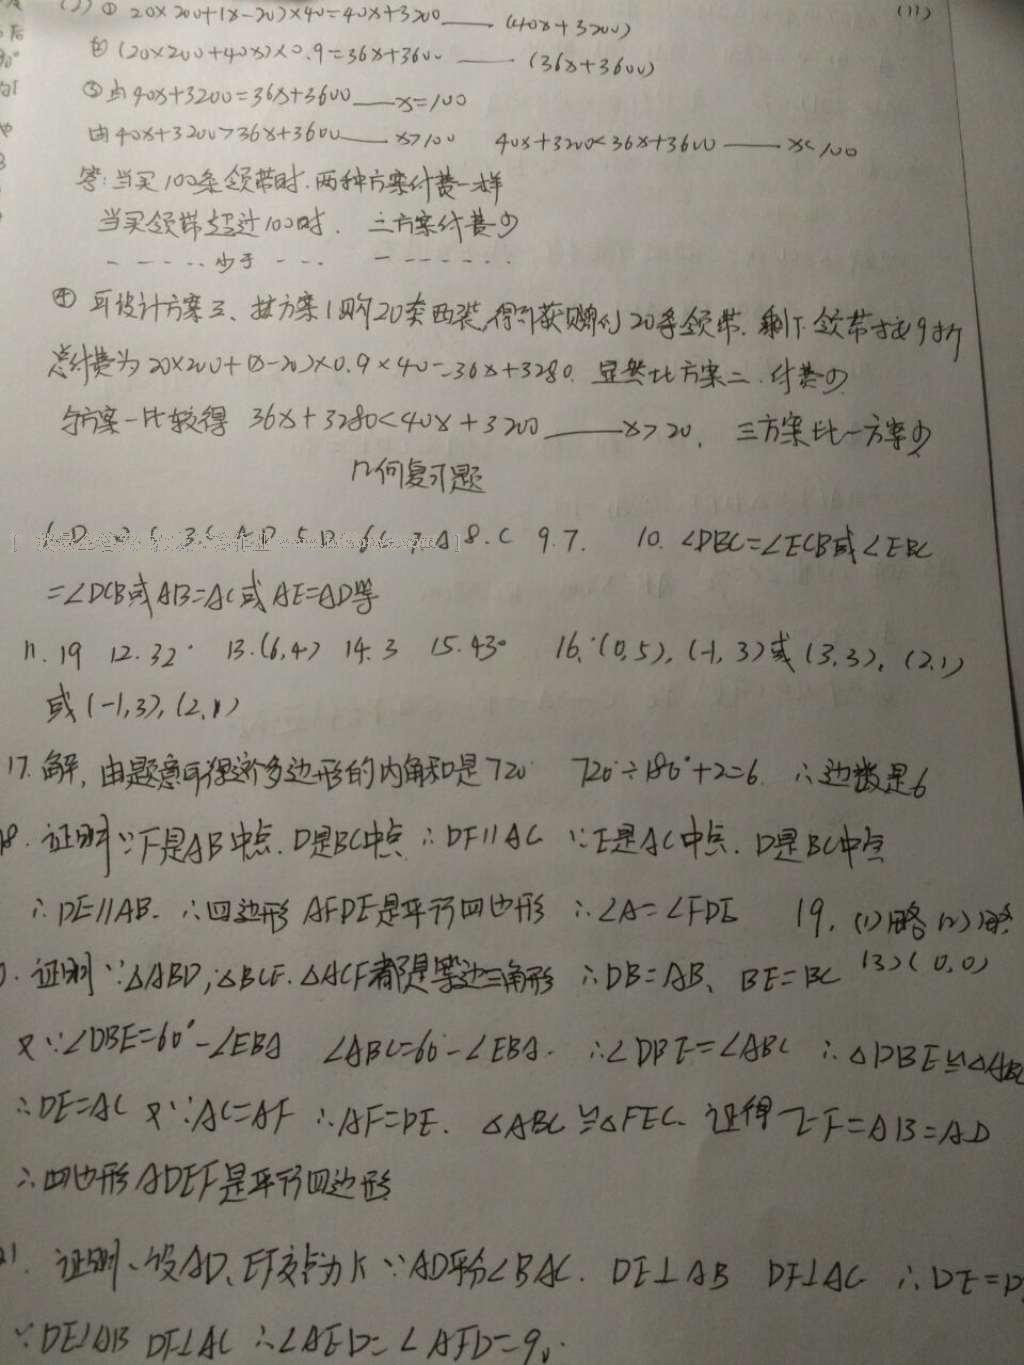 (2) ① 20×200+(x-20)×40=40x+3200 —— (40x+3200)
(11)
② (20×200+40x)×0.9=36x+3600 —— (36x+3600)
③ 由40x+3200=36x+3600 —— x=100
由40x+3200>36x+3600 —— x>100 40x+3200<36x+3600 —— x<100
答:当买100条领带时.两种方案付费一样
当买领带超过100时. 二方案付费少
- - - - - 少于 - - - - - - - - - -
④ 可设计方案三、按方案1购20套西装,得到获赠的20条领带.剩下领带按9折
总付费为20×200+(x-20)×0.9×40=36x+3280. 显然比方案二.付费少
与方案一比较得 36x+3280<40x+3200 —— x>20. 三方案比一方案少
几何复习题
1.D 3.C 4.D 5.D 6.C 7.A 8.C 9.7. 10. ∠DBC=∠ECB或∠EBC
=∠DCB或AB=AC或AE=AD等
11. 19 12. 32° 13.(6,4) 14. 3 15. 43° 16. (0,5),(-1,3)或(3,3),(2,1)
或(-1,3),(2,1)
17. 解,由题意可得这个多边形的内角和是720° 720°÷180°+2=6. ∴边数是6
18. 证明∵F是AB中点.D是BC中点 ∴DF∥AC ∵E是AC中点.D是BC中点
∴DE∥AB. ∴四边形AFDE是平行四边形 ∴∠A=∠FDE 19. (1)略(2)略
(3)(0,0)
证明∵△ABD,△BCE.△ACF都是等边三角形 ∴DB=AB、BE=BC
又∵∠DBE=60°-∠EBA ∠ABC=60°-∠EBA. ∴∠DBE=∠ABC ∴△DBE≌△ABC
∴DE=AC 又∵AC=AF ∴AF=DE. △ABC≌△FEC. 证得EF=AB=AD
∴四边形ADEF是平行四边形
21. 证明、设AD、EF交点为K ∵AD平分∠BAC. DE⊥AB DF⊥AC ∴DE=D
∵DE⊥AB DF⊥AC ∴∠AED=∠AFD=90°